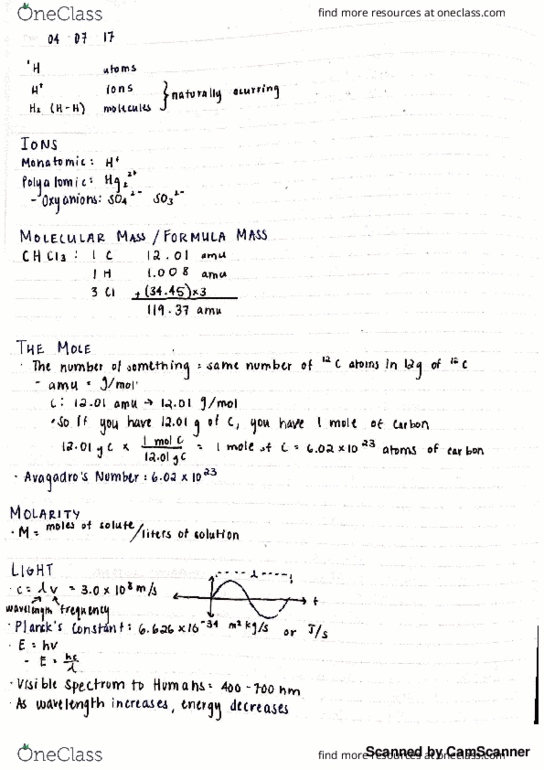 OneClass
find more resources at oneclass.com
04 07 17
¹H atoms
H⁺ ions
H₂ (H-H) molecules } naturally ocurring
IONS
Monatomic: H⁺
Polyatomic: Hg₂²⁺
- Oxyanions: SO₄²⁻ SO₃²⁻
MOLECULAR MASS / FORMULA MASS
CHCl₃: 1 C 12.01 amu
1 H 1.008 amu
3 Cl +(34.45)×3
119.37 amu
THE MOLE
· The number of something = same number of ¹²C atoms in 12g of ¹²C
- amu = g/mol
C: 12.01 amu → 12.01 g/mol
· So if you have 12.01 g of C, you have 1 mole of carbon
12.01 g C × 1 mol C / 12.01 g C = 1 mole of C = 6.02 × 10²³ atoms of carbon
· Avagadro's Number: 6.02 × 10²³
MOLARITY
· M = moles of solute/liters of solution
LIGHT
· c = λν = 3.0 × 10⁸ m/s
wavelength frequency
λ
t
· Planck's Constant: 6.626 × 10⁻³⁴ m² kg/s or J/s
· E = hν
- E = hc/λ
· Visible Spectrum to Humans: 400 - 700 nm
· As wavelength increases, energy decreases
OneClass
find more resources at oneclass.com
Scanned by CamScanner